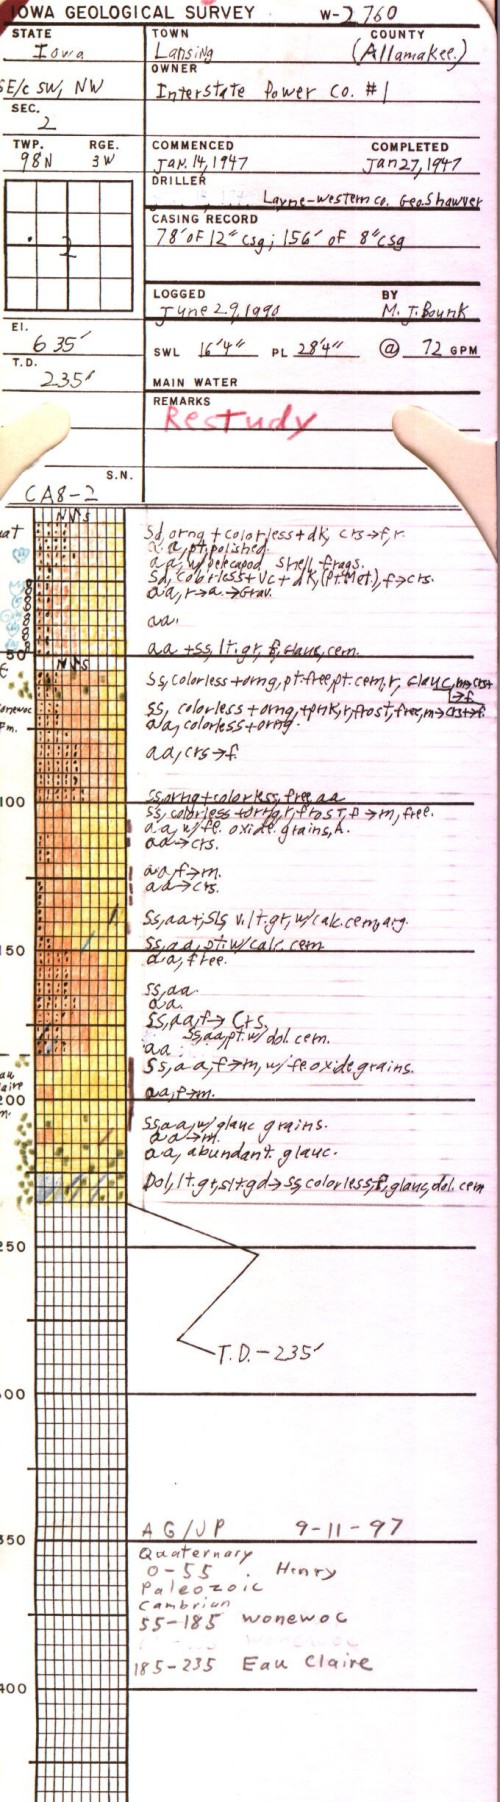 IOWA GEOLOGICAL SURVEY W-2760
STATE TOWN COUNTY
Iowa Lansing (Allamakee)
OWNER
SE/c SW, NW Interstate Power Co. #1
SEC.
2
TWP. RGE. COMMENCED COMPLETED
98N 3W Jan. 14, 1947 Jan 27, 1947
DRILLER
Layne-Western Co. Geo. Shawver
CASING RECORD
2 78' of 12" csg; 156' of 8" csg
LOGGED BY
June 29, 1990 M. J. Bounk
El.
635' SWL 16'4" PL 28'4" @ 72 GPM
T.D.
235' MAIN WATER
REMARKS
Restudy
S.N.
CA8-2
Sd, orng + colorless + dk, crs→f, r.
a.a, pt. polished.
a.a, w/ pelecapod shell frags.
Sd, colorless + vc + dk, (pt. Met.), f→crs.
aa, r→a.→Grav.
aa.
aa + ss, lt. gr, f, glauc, cem.
50
Ss, colorless + orng, pt. free, pt. cem, r, glauc, m→crs
→f.
Ss, colorless + orng + pnk, r, frost, free, m→crs→f.
aa, colorless + orng.
Fm.
aa, crs→f.
100 Ss, orng + colorless, free aa
ss, colorless + orng, r, frost, f→m, free.
a.a, w/ fe. oxide grains, h.
aa→crs.
aa, f→m.
aa→crs.
Ss, aa + sls v. lt. gr, w/ calc. cem, arg.
150 Ss, aa, pt. w/ calc. cem
aa, free.
ss, aa.
aa.
Ss, aa, f→crs,
Ss, aa, pt. w/ dol. cem.
aa
Ss, aa, f→m, w/ fe oxide grains.
200 aa, f→m.
Ss, aa, w/ glauc grains.
aa→m.
aa, abundant glauc.
Dol, lt. gr, slt. gd→ss, colorless, f, glauc, dol. cem
250
T.D. - 235'
00
350 AG/JP 9-11-97
Quaternary
0-55 . Henry
Paleozoic
Cambrian
55-185 Wonewoc
185-235 Eau Claire
400